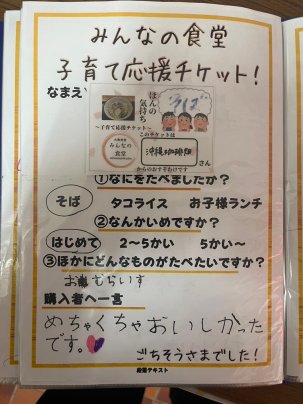 みんなの食堂
子育て応援チケット!
なまえ
ほんの
気持ち
そば
~子育て応援チケット~
このチケットは
みんなの
食堂
沖縄珈琲類
さん
からのおすそわけです
①なにをたべましたか?
そば タコライス お子様ランチ
②なんかいめですか?
はじめて 2~5かい 5かい~
③ほかにどんなものがたべたいですか?
おむらいす
購入者へ一言
めちゃくちゃおいしかった
です。
ごちそうさまでした!
段落テキスト